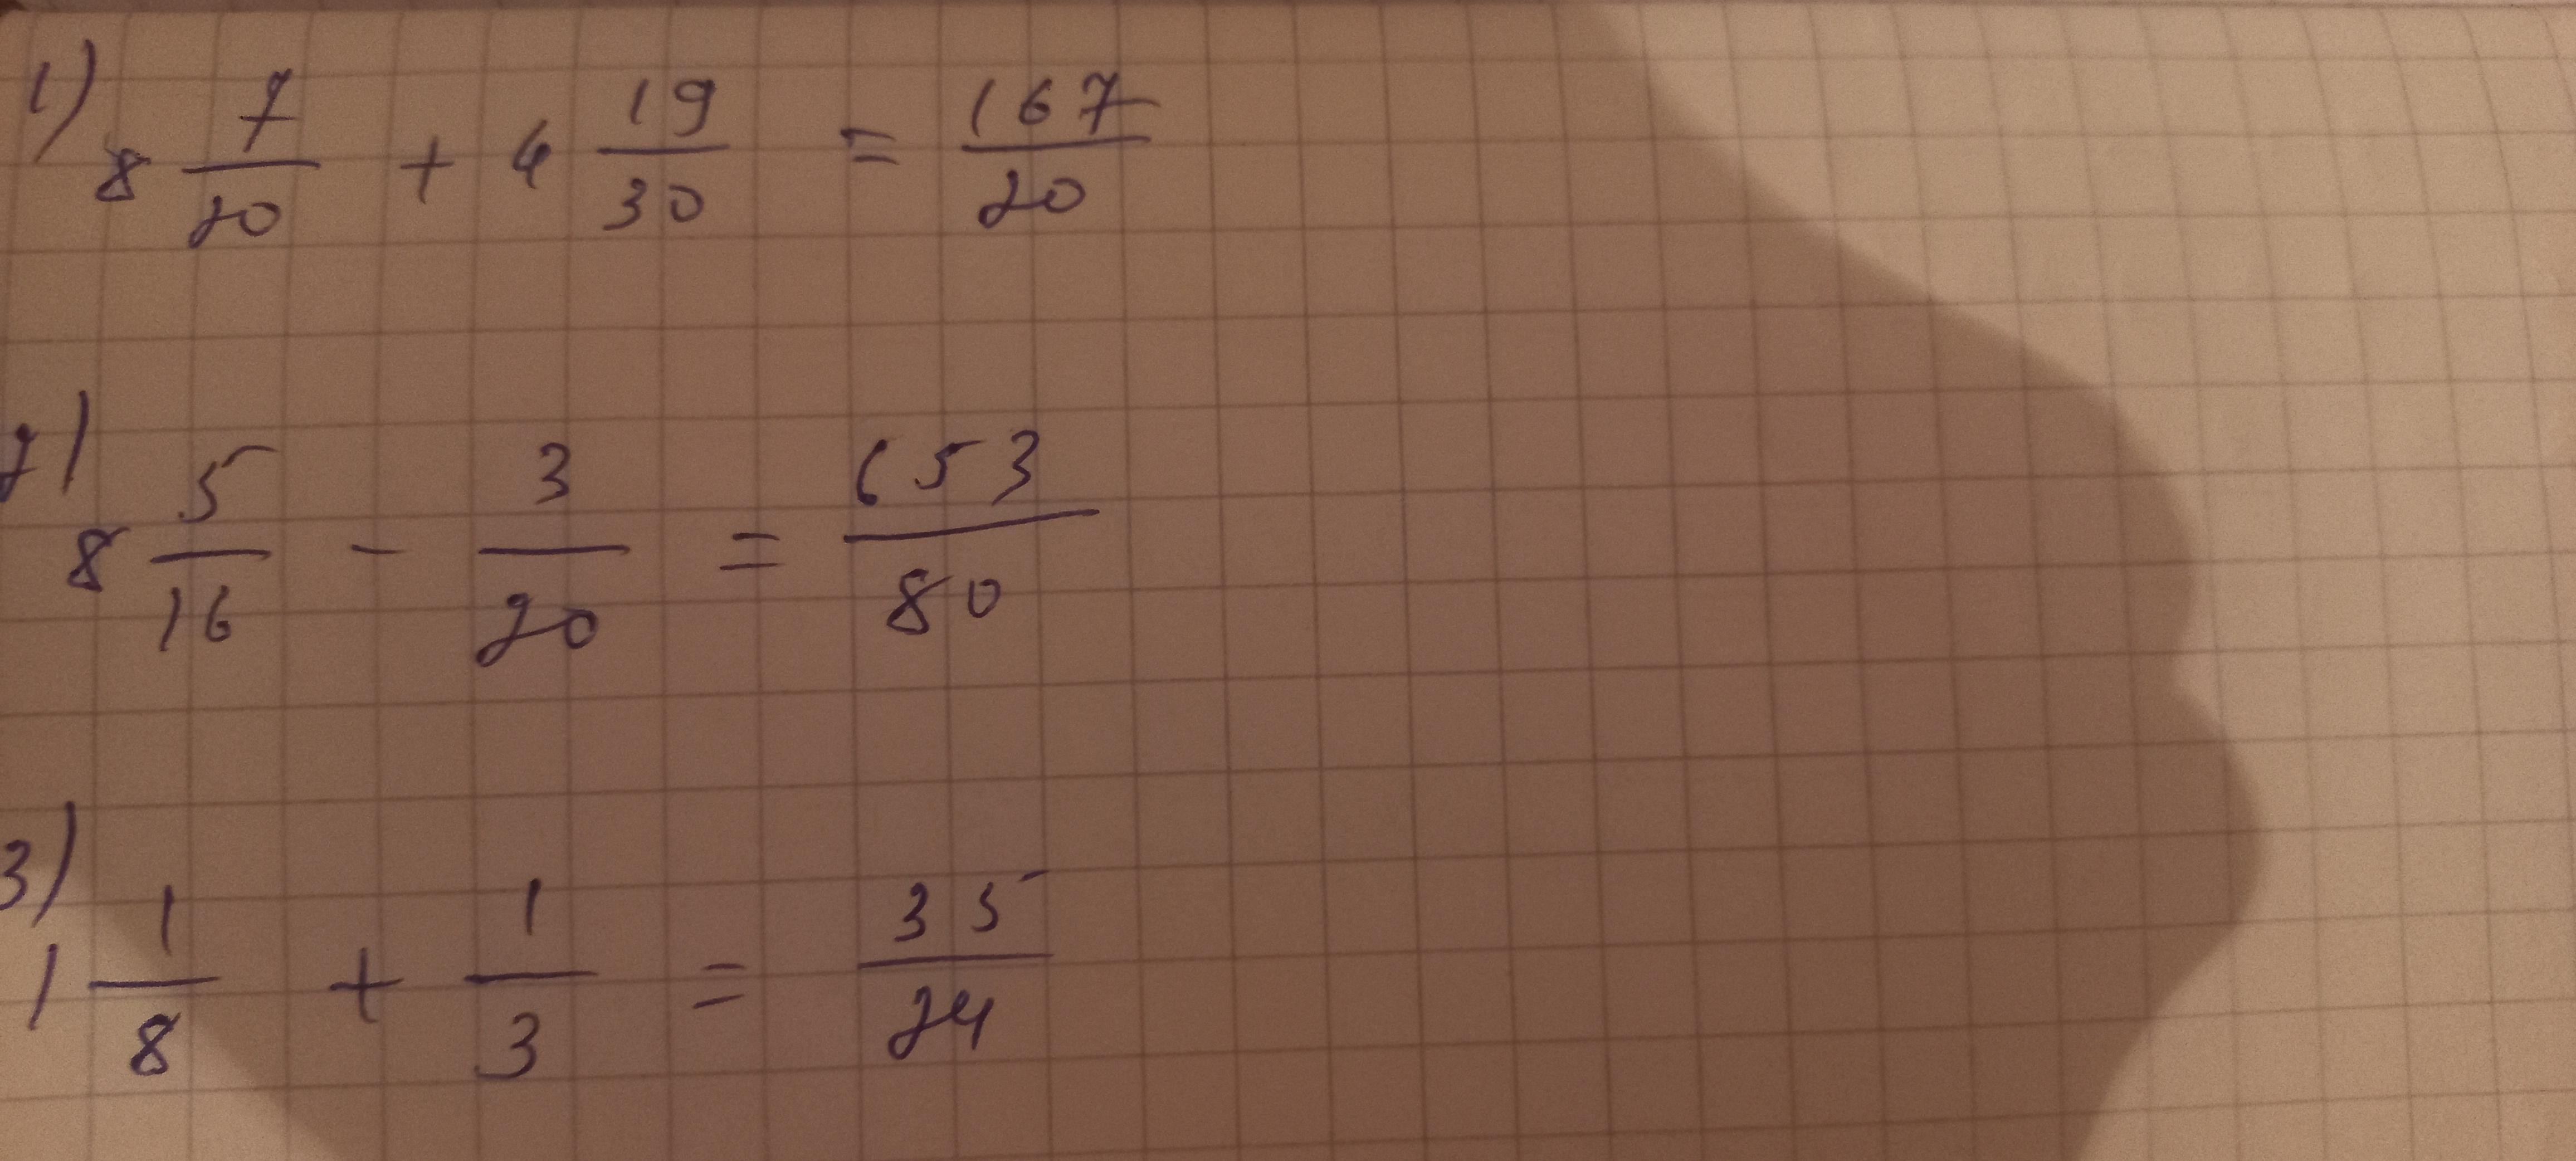 1) 8 7/20 + 4 19/30 = 167/20
2) 8 5/16 - 3/20 = 653/80
3) 1 1/8 + 1/3 = 35/24